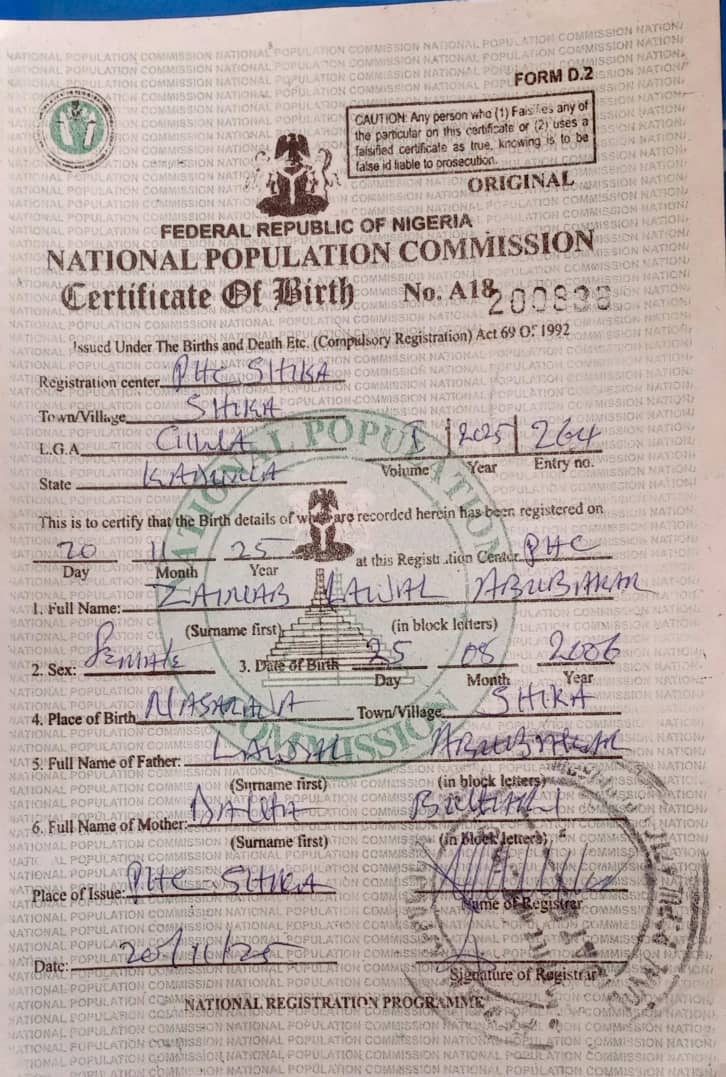 FORM D.2
CAUTION: Any person who (1) Falsifies any of
the particular on this certificate or (2) uses a
falsified certificate as true, knowing is to be
false id liable to prosecution.
ORIGINAL
FEDERAL REPUBLIC OF NIGERIA
NATIONAL POPULATION COMMISSION
Certificate Of Birth No. A18 200836
Issued Under The Births and Death Etc. (Compulsory Registration) Act 69 Of 1992
Registration center PHC SHIKA
Town/Village SHIKA
L.G.A GIWA I 2025 264
Volume Year Entry no.
State KADUNA
This is to certify that the Birth details of whom are recorded herein has been registered on
20 11 25 at this Registration Center PHC
Day Month Year
1. Full Name: ZAINAB LAWAL ABUBAKAR
(Surname first) (in block letters)
2. Sex: Female 3. Date of Birth 25 08 2006
Day Month Year
4. Place of Birth MASARAWA Town/Village SHIKA
5. Full Name of Father: LAWAL ABUBAKAR
(Surname first) (in block letters)
6. Full Name of Mother:
(Surname first) (in block letters)
Place of Issue: PHC SHIKA
Name of Registrar
Date: 20/11/25
Signature of Registrar
NATIONAL REGISTRATION PROGRAMME
NATIONAL POPULATION COMMISSION